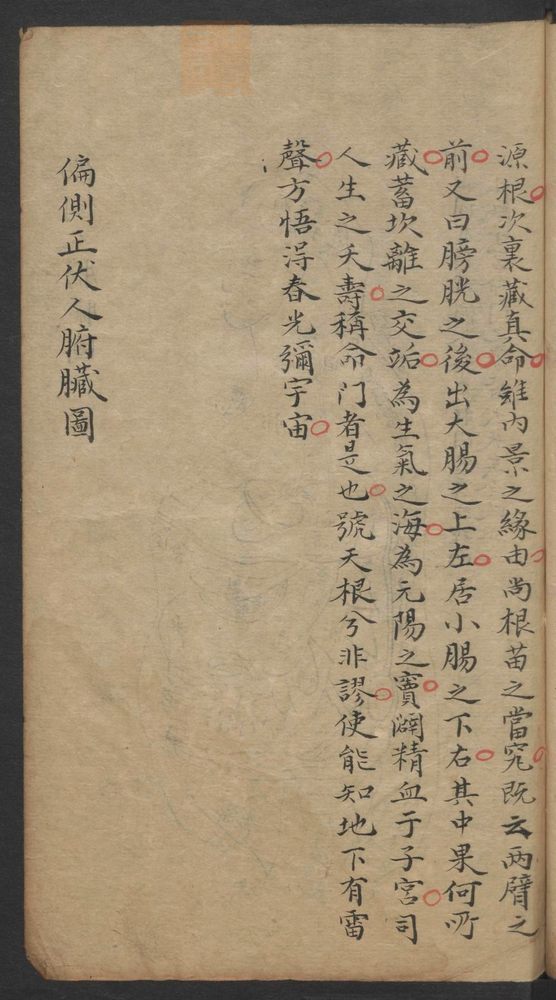 源根次裏藏真命雖内景之緣由尚根苗之當究既云两臂之
前又曰膀胱之後出大腸之上左居小腸之下右其中果何所
藏蓄坎離之交姤為生氣之海為元陽之竇闢精血于子宮司
人生之夭壽稱命门者是也號天根兮非謬使能知地下有雷
聲方悟淂春光彌宇宙
偏側正伏人腑臟圖